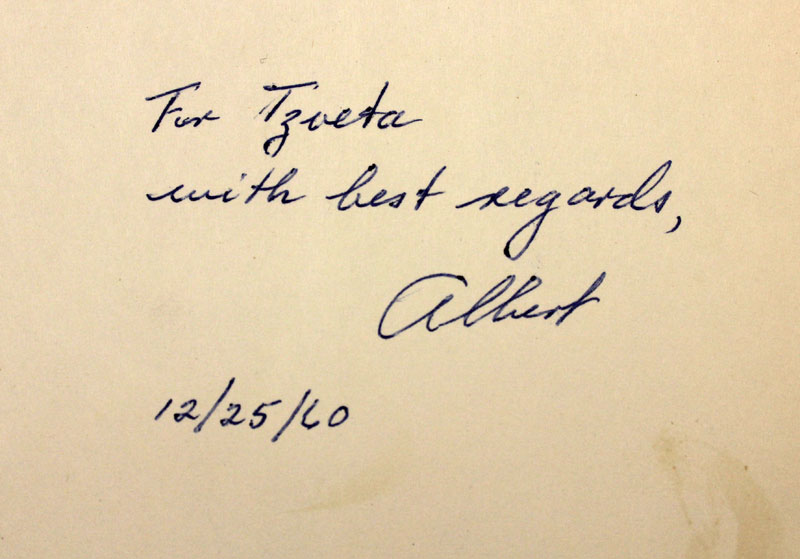 For Tzveta
with best regards,
Albert
12/25/60